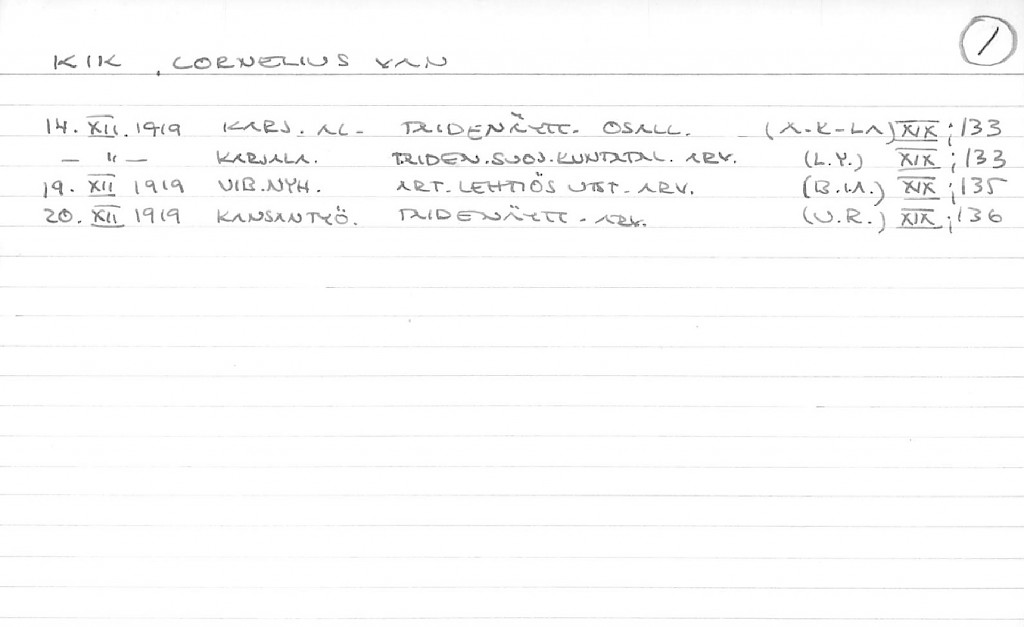 1
KIK, CORNELIUS VAN
14. XII. 1919 KARJ. AL- TAIDENÄYTT. OSALL. (A-K-LA) XIX; 133
— " — KARJALA. TAIDEN. SUOJ. KUNTATAL. ARV. (L.Y.) XIX; 133
19. XII 1919 VIB. NYH. ART. LEHTIÖS UTST. ARV. XIX; 135
20. XII 1919 KANSANTYÖ. TAIDENÄYTT. ARV. (U.R.) XIX; 136